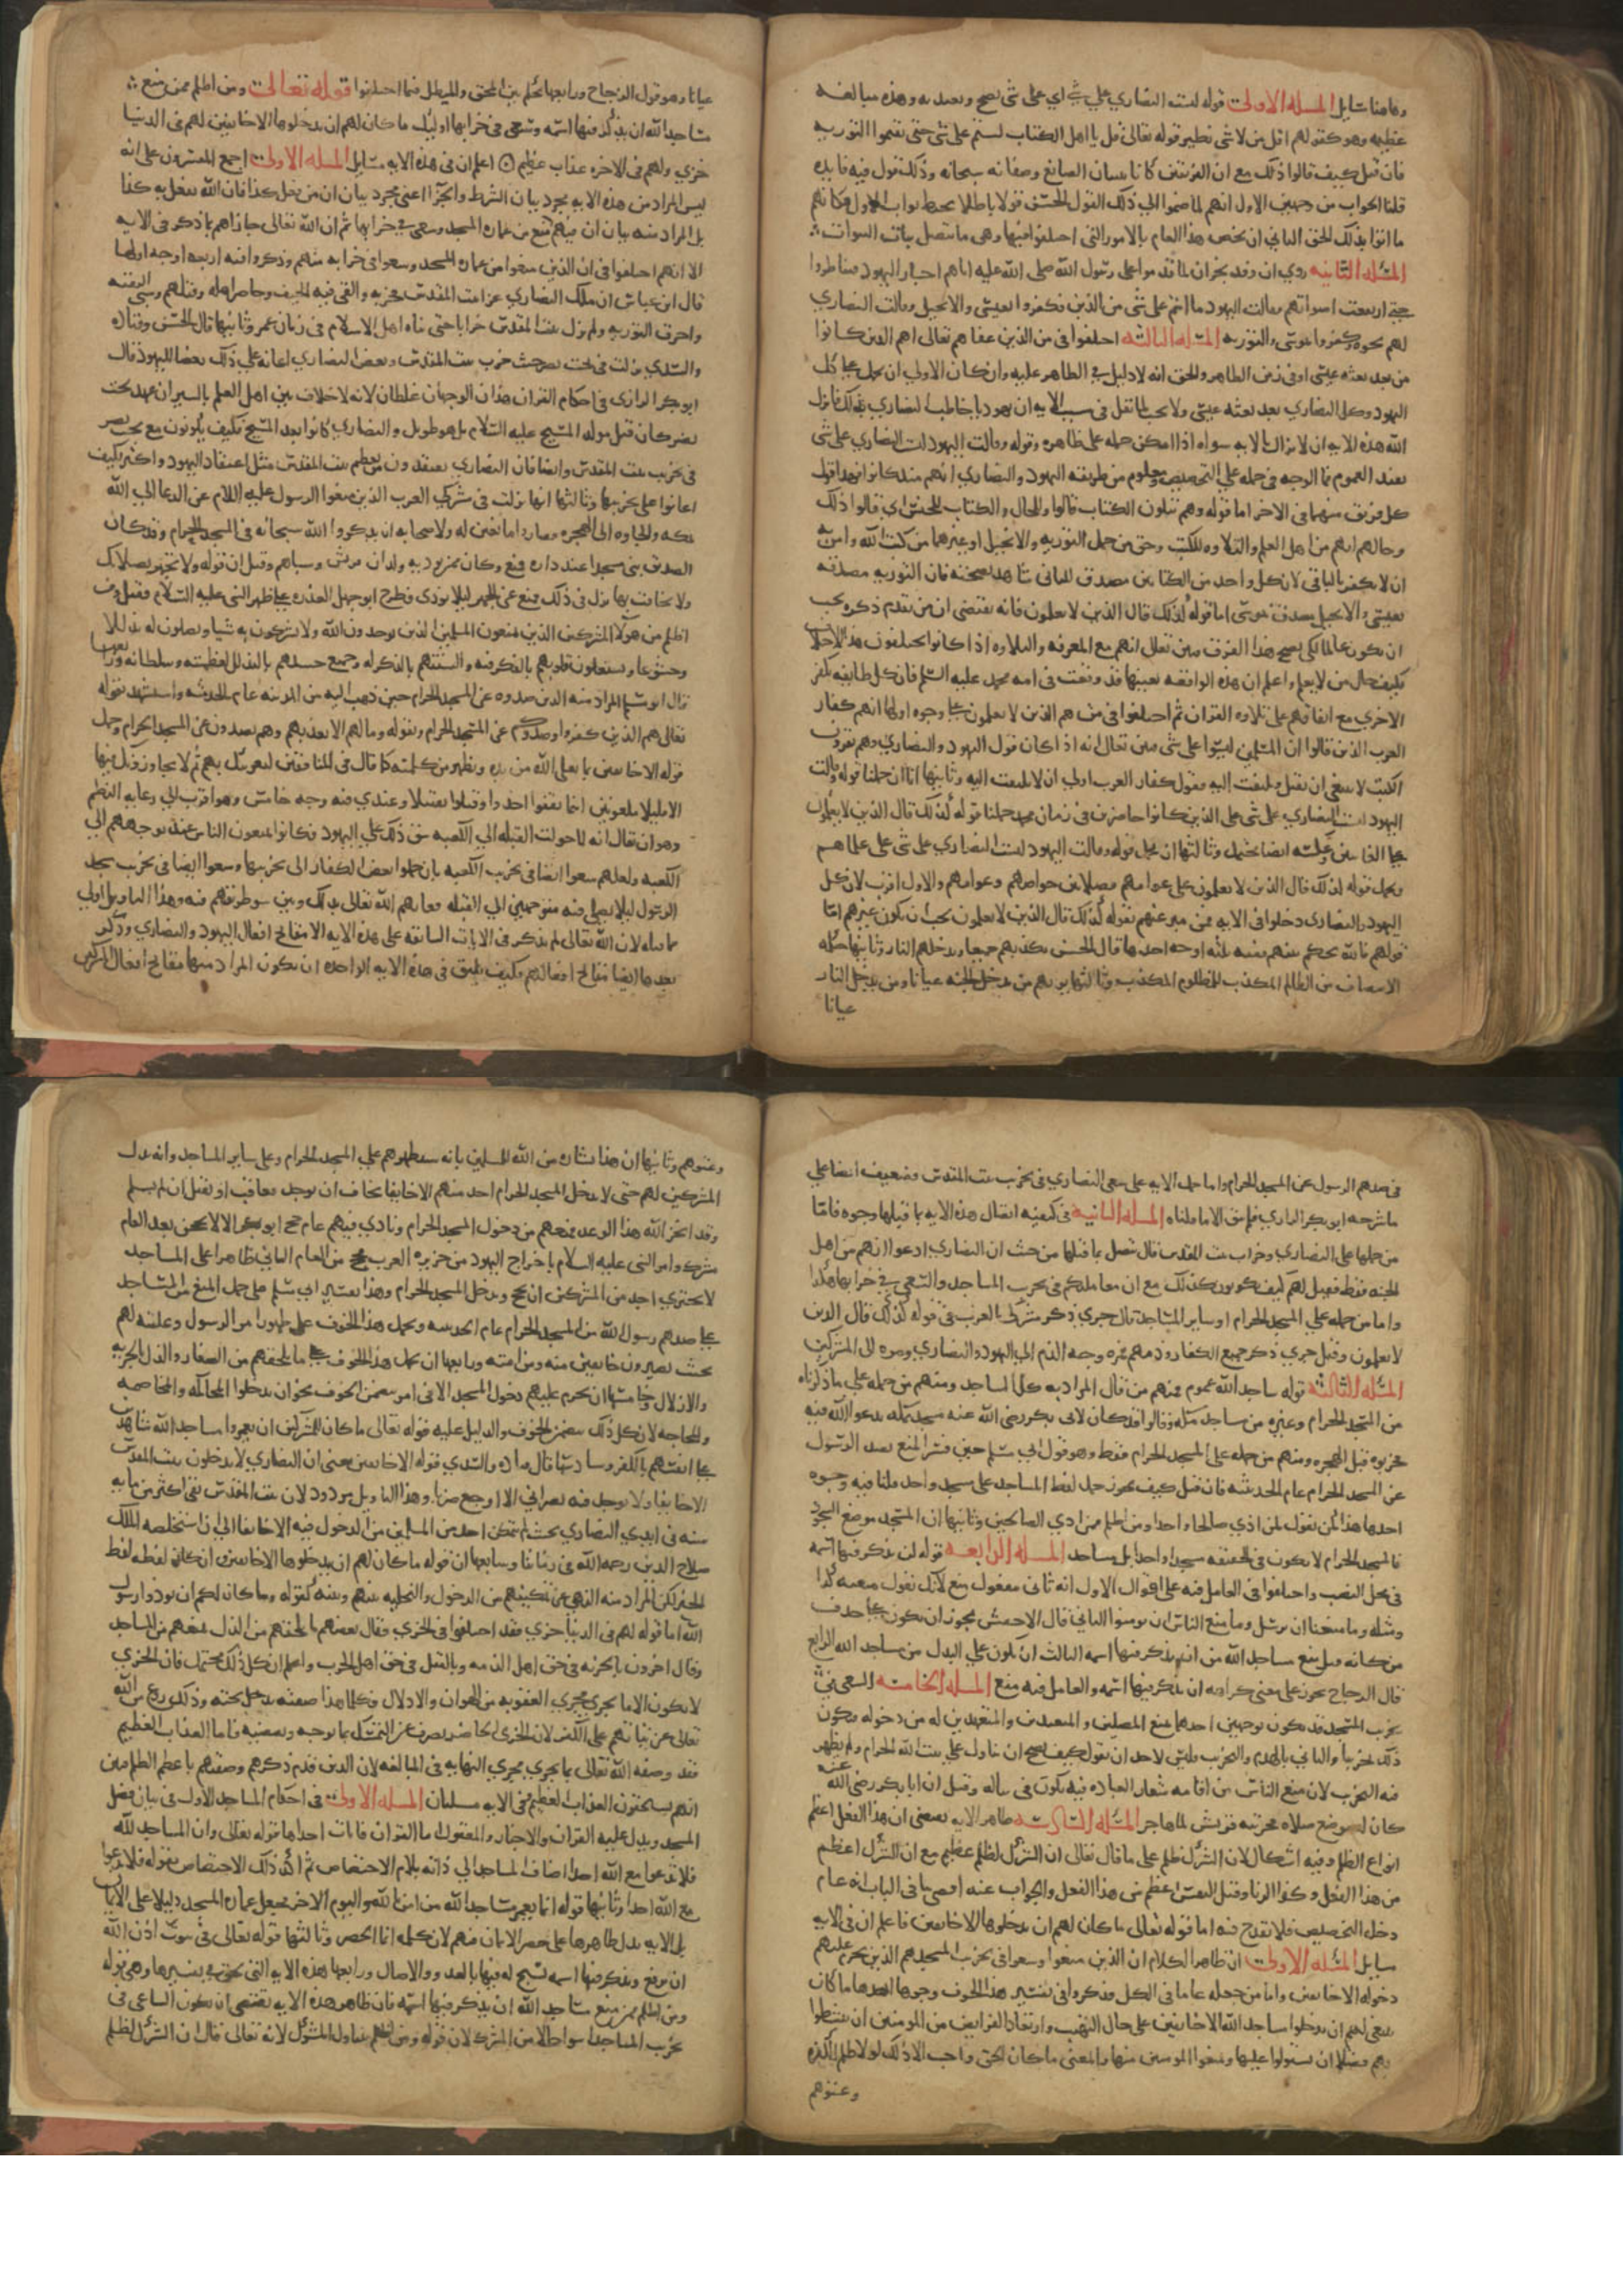 وهاهنا مسايل المسلة الاولى قوله ليست النصاري علي شي اي على شي يصح ويعتد به وهذه مبالغة
عظيمه وهو كقولهم اقل من لا شي ونظيره قوله تعالى قل يا اهل الكتاب لستم على شي حتى تقيموا التوريه
فان قيل كيف قالوا ذلك مع ان الفريقين كانا يثبتان الصانع وصفاته سبحانه وذلك قول فيه فايده
قلنا الجواب من وجهين الاول انهم لما ضموا الي ذلك القول الحسن قولا باطلا يحبط ثواب الاول فكانهم
ما اتوا بذلك الحق الثاني ان يخص هذا العام بالامور التي اختلفوا فيها وهي ما يتصل بباب النبوات
المسلة الثانيه روي ان وفد نجران لما قدموا على رسول الله صلى الله عليه اتاهم احبار اليهود فتناظروا
حتى ارتفعت اصواتهم فقالت اليهود ما انتم على شي من الدين فكفروا بعيسى والانجيل وقالت النصاري
لهم نحوه وكفروا بموسى والتوريه المسلة الثالثة اختلفوا في من الذين عناهم تعالى اهم الذين كانوا
من بعد بعثة عيسى او في زمن
اليهود وكل النصاري بعد بعثه عيسى ولا يجب لما نقل في سبب الايه ان يهوديا خاطب النصاري بذلك فانزل
الله هذه الايه ان لا يراد بالايه سواه اذا امكن حمله على ظاهره وقوله وقالت اليهود ليست النصاري على شي
يفيد العموم فما الوجه في حمله علي التخصيص ومعلوم من طريقه اليهود والنصاري انهم منذ كانوا فهذا قول
كل فريق منهما في الاخر اما قوله وهم يتلون الكتاب فالواو للحال والكتاب للجنس اي قالوا ذلك
وحالهم انهم من اهل العلم والتلاوه للكتب وحق من حمل التوريه والانجيل او غيرهما من كتب الله وامن به
ان لا يكفر بالباقي لان كل واحد من الكتابين مصدق للثاني شاهد بصحته فان التوريه مصدقه
بعيسى والانجيل مصدق بموسى اما قوله كذلك قال الذين لا يعلمون فانه يقتضي ان من تقدم ذكره يجب
ان يكون عالما لكي يصح هذا الفرق فبين تعالى انهم مع المعرفه والتلاوه اذا كانوا يختلفون هذا الاختلاف
فكيف حال من لا يعلم واعلم ان هذه الواقعه بعينها قد وقعت في امه محمد عليه السلم فان كل طايفه تكفر
الاخري مع اتفاقهم على تلاوه القران ثم اختلفوا في من هم الذين لا يعلمون على وجوه اولها انهم كفار
العرب الذين قالوا ان المسلمين ليسوا على شي فبين تعالى انه اذا كان قول اليهود والنصاري وهم يقرون
الكتب لا ينبغي ان يقبل ويلتفت اليه فقول كفار العرب اولي ان لا يلتفت اليه وثانيها انا ان حملنا قوله وقالت
اليهود ليست النصاري على شي على الذين كانوا حاضرين في زمان محمد حملنا قوله كذلك قال الذين لا يعلمون
على الغايبين وعكسه ايضا محتمل وثالثها ان يحمل قوله وقالت اليهود ليست النصاري على شي على علماهم
ويحمل قوله كذلك قال الذين لا يعلمون على عوامهم فصلا بين خواصهم وعوامهم والاول اقرب لان كل
اليهود والنصارى دخلوا في الايه فمن ميز عنهم بقوله كذلك قال الذين لا يعلمون يجب ان يكون غيرهم اما
قولهم فالله يحكم بينهم ففيه اربعة اوجه احدها قال الحسن يكذبهم جميعا ويدخلهم النار وثانيها حكمه
الانتصاف من الظالم المكذب للمظلوم المكذب وثالثها يريهم من يدخل الجنه عيانا ومن يدخل النار
عيانا
عيانا وهو قول الزجاج ورابعها يحكم بين المحق والمبطل فيما اختلفوا قوله تعالى ومن اظلم ممن منع
مساجد الله ان يذكر فيها اسمه وسعى في خرابها اوليك ما كان لهم ان يدخلوها الا خايفين لهم في الدنيا
خزي ولهم في الاخره عذاب عظيم اعلم ان في هذه الايه مسايل المسله الاولى اجمع المفسرون على انه
ليس المراد من هذه الايه مجرد بيان الشرط والجزا اعني مجرد بيان ان من يفعل كذا فان الله يفعل به كذا
بل المراد منه بيان ان فيهم من منع من عمارة المسجد وسعى في خرابها ثم ان الله تعالى جازاهم بما ذكر في الايه
الا انهم اختلفوا في ان الذين منعوا من عمارة المسجد وسعوا في خرابه من هم وذكروا فيه اربعه اوجه اولها
قال ابن عباس ان ملك النصاري غزا بيت المقدس فخربه والقى فيه الجيف وحاصر اهله وقتلهم وسبى البقيه
واحرق التوريه ولم يزل بيت المقدس خرابا حتى بناه اهل الاسلام في زمان عمر وثانيها قال الحسن وقتاده
والسدي نزلت في بخت نصر حيث خرب بيت المقدس وبعض النصاري اعانه على ذلك بغضا لليهود قال
ابو بكر الرازي في احكام القران هذان الوجهان غلطان لانه لا خلاف بين اهل العلم بالسير ان عهد بخت
نصر كان قبل مولد المسيح عليه السلام بدهر طويل والنصاري كانوا بعد المسيح فكيف يكونون مع بخت نصر
في تخريب بيت المقدس وايضا فان النصاري يعتقدون من تعظيم بيت المقدس مثل اعتقاد اليهود واكثر فكيف
اعانوا على تخريبها وثالثها انها نزلت في مشركي العرب الذين منعوا الرسول عليه السلام عن الدعا الي الله
بمكه والجاوه الى الهجره فصاروا مانعين له ولاصحابه ان يذكروا الله سبحانه في المسجد الحرام وقد كان
الصديق بنى مسجدا عند داره فمنع وكان ممن يوذيه ولدان قريش ونساهم وقيل ان قوله ولا تجهر بصلاتك
ولا تخافت بها نزل في ذلك فمنع عن الجهر ليلا يوذى وطرح ابو جهل العذره على ظهر النبي عليه السلام فقيل ومن
اظلم من هولا المشركين الذين يمنعون المسلمين الذين يوحدون الله ولا يشركون به شيا ويصلون له تذللا
وخشوعا ويستعملون قلوبهم بالفكر فيه والسنتهم بالذكر له وجميع جسدهم بالتذلل لعظمته وسلطانه ورابعها
قال ابو مسلم المراد منه الذين صدوه عن المسجد الحرام حين ذهب اليه من المدينه عام الحديبيه واستشهد بقوله
تعالى هم الذين كفروا وصدوكم عن المسجد الحرام وبقوله وما لهم الا يعذبهم وهم يصدون عن المسجد الحرام وحمل
قوله الا خايفين بما يعلي الله من يده ويظهر من كلمته كما قال في المنافقين لنغرينك بهم ثم لا يجاورونك فيها
الا قليلا ملعونين اينما ثقفوا اخذوا وقتلوا تقتيلا وعندي فيه وجه خامس وهو اقرب الي رعايه النظم
وهو ان يقال انه لما حولت القبله الي الكعبه شق ذلك على اليهود فكانوا يمنعون الناس عند توجههم الي
الكعبه ولعلهم سعوا ايضا في تخريب الكعبه بان حملوا بعض الكفار الى تخريبها وسعوا ايضا في تخريب مسجد
الرسول ليلا يصلي فيه متوجهين الي القبله فعابهم الله تعالى بذلك وبين سو طريقتهم فيه وهذا التاويل اولي
مما قبله لان الله تعالى لم يذكر في الايات السابقه على هذه الايه الا قبايح افعال اليهود والنصاري وذكر
بعدها ايضا قبايح افعالهم فكيف يليق في هذه الايه الواحده ان يكون المراد منها قبايح افعال المشركين
في صدهم الرسول عن المسجد الحرام واما حمل الايه على سعي النصاري في تخريب بيت المقدس فضعيف ايضا على
ما شرحه ابو بكر الرازي فلم يبق الا ما قلناه المسله الثانيه في كيفيه اتصال هذه الايه بما قبلها وجوه فاما
من حملها على النصاري وخراب بيت المقدس قال تتصل بما قبلها من حيث ان النصاري ادعوا انهم من اهل
الجنه فقط فقيل لهم كيف تكونون كذلك مع ان معاملتكم في تخريب المساجد والسعي في خرابها هكذا
واما من حمله علي المسجد الحرام او ساير المساجد قال جرى ذكر مشركي العرب في قوله كذلك قال الذين
لا يعلمون وقيل جري ذكر جميع الكفار وذمهم فمره وجه الذم الي اليهود والنصاري ومره الي المشركين
المسله الثالثه قوله مساجد الله عموم فمنهم من قال المراد به كل المساجد ومنهم من حمله علي ما ذكرناه
من المسجد الحرام وغيره من مساجد مكه وقالوا قد كان لابي بكر رضي الله عنه مسجد بمكه يدعو الله فيه
فخربوه قبل الهجره ومنهم من حمله على المسجد الحرام فقط وهو قول ابي مسلم حين فسر المنع بصد الرسول
عن المسجد الحرام عام الحديبيه فان قيل كيف يجوز حمل لفظ المساجد على مسجد واحد قلنا فيه وجوه
احدها هذا كمن يقول لمن اذي صالحا واحدا ومن اظلم ممن اذي الصالحين وثانيها ان المسجد موضع السجود
فالمسجد الحرام لا يكون في الحقيقه مسجدا واحدا بل مساجد المسله الرابعه قوله ان يذكر فيها اسمه
في محل النصب واختلفوا في العامل فيه على اقوال الاول انه ثاني مفعولي منع لانك تقول منعته كذا
ومثله وما منعنا ان نرسل وما منع الناس ان يومنوا الثاني قال الاخفش يجوز ان يكون على حذف
من كانه قيل منع مساجد الله من ان يذكر فيها اسمه الثالث ان يكون علي البدل من مساجد الله الرابع
قال الزجاج يجوز على معنى كراهه ان يذكر فيها اسمه والعامل فيه منع المسله الخامسه السعي في
تخريب المسجد قد يكون لوجهين احدهما منع المصلين والمتعبدين والمتعهدين له من دخوله فيكون
ذلك تخريبا والثاني بالهدم والتخريب وليس لاحد ان يقول كيف يصح ان يتاول على بيت الله الحرام ولم يظهر
فيه التخريب لان منع الناس من اقامه شعار العباده فيه يكون تخريبا له وقيل ان ابا بكر رضي الله عنه
كان له موضع صلاه فخربته قريش لما هاجر المسله السادسه ظاهر الايه يقتضي ان هذا الفعل اعظم
انواع الظلم وفيه اشكال لان الشرك ظلم على ما قال تعالى ان الشرك لظلم عظيم مع ان الشرك اعظم
من هذا الفعل وكذا الزنا وقتل النفس اعظم من هذا الفعل والجواب عنه اقصى ما في الباب انه عام
دخله التخصيص فلا يقدح فيه اما قوله تعالى ما كان لهم ان يدخلوها الا خايفين فاعلم ان في الايه
مسايل المسله الاولى ان ظاهر الكلام ان الذين منعوا وسعوا في تخريب المسجد هم الذين يحرم عليهم
دخوله الا خايفين واما من جعله عاما في الكل فذكروا في تفسير هذا الخوف وجوها احدها ما كان
ينبغي لهم ان يدخلوا مساجد الله الا خايفين على حال التهيب وارتعاد الفرايص من المومنين ان يبطشوا
بهم فضلا ان يستولوا عليها ويمنعوا المومنين منها والمعنى ما كان الحق واجب الا ذلك لولا ظلم الكفره
وعتوهم
وعتوهم وثانيها ان هذا بشاره من الله للمسلمين بانه سيظهرهم علي المسجد الحرام وعلى ساير المساجد وانه يذل
المشركين لهم حتى لا يدخل المسجد الحرام احد منهم الا خايفا يخاف ان يوخذ فيعاقب او يقتل ان لم يسلم
وقد انجز الله هذا الوعد فمنعهم من دخول المسجد الحرام ونادي فيهم عام حج ابو بكر الا لا يحجن بعد العام
مشرك وامر النبي عليه السلام باخراج اليهود من جزيره العرب فحج من العام الثاني ظاهرا على المساجد
لا يجتري احد من المشركين ان يحج ويدخل المسجد الحرام وهذا تفسير ابي مسلم على حمل المنع من المساجد
على صدهم رسول الله عن المسجد الحرام عام الحديبيه ويحمل هذا الخوف على ظهور امر الرسول وغلبته لهم
بحيث يصيرون خايفين منه ومن امته ورابعها ان يحمل هذا الخوف على ما يلحقهم من الصغار والذل بالجزيه
والاذلال وخامسها ان يحرم عليهم دخول المسجد الا في امر يتضمن الخوف نحو ان يدخلوا للمحاكمه والمخاصمه
والمحاجه لان كل ذلك يتضمن الخوف والدليل عليه قوله تعالى ما كان للمشركين ان يعمروا مساجد الله شاهدين
على انفسهم بالكفر وسادسها قال قتاده والسدي قوله الا خايفين يعني ان النصاري لا يدخلون بيت المقدس
الا خايفا ولا يوجد فيه نصراني الا اوجع ضربا وهذا التاويل مردود لان بيت المقدس بقي اكثر من مايه
سنه في ايدي النصاري بحيث لم يتمكن احد من المسلمين من الدخول فيه الا خايفا الي ان استخلصه الملك
صلاح الدين رحمه الله في زماننا وسابعها ان قوله ما كان لهم ان يدخلوها الا خايفين ان كان لفظه لفظ
الخبر لكن المراد منه النهي عن تمكينهم من الدخول والتخليه بينهم وبينه كقوله وما كان لكم ان توذوا رسول
الله اما قوله لهم في الدنيا خزي فقد اختلفوا في الخزي فقال بعضهم ما يلحقهم من الذل بمنعهم من المساجد
وقال اخرون بالجزيه في حق اهل الذمه وبالقتل في حق اهل الحرب واعلم ان كل ذلك محتمل فان الخزي
لا يكون الا ما يجري مجري العقوبه من الهوان والاذلال فكلما هذا صفته يدخل تحته وذلك ردع من الله
تعالى عن ثباتهم على الكفر لان الخزي الحاضر يصرف عن التمسك بما يوجبه ويقتضيه فاما العذاب العظيم
فقد وصفه الله تعالى بما يجري مجري النهايه في المبالغه لان الذين قدم ذكرهم وصفهم باعظم الظلم فبين
انهم يستحقون العذاب العظيم في الايه مسلتان المسله الاولى في احكام المساجد الاول في بيان فضل
المسجد ويدل عليه القران والاخبار والمعقول اما القران فايات احداها قوله تعالى وان المساجد لله
فلا تدعوا مع الله احدا اضاف المساجد الي ذاته بلام الاختصاص ثم اكد ذلك الاختصاص بقوله فلا تدعوا
مع الله احدا وثانيها قوله انما يعمر مساجد الله من امن بالله واليوم الاخر فجعل عماره المسجد دليلا على الايمان
بل الايه تدل بظاهرها على حصر الايمان فيهم لان كلمه انما للحصر وثالثها قوله تعالى في بيوت اذن الله
ان ترفع ويذكر فيها اسمه يسبح له فيها بالغدو والاصال ورابعها هذه الايه التي نحن في تفسيرها وهي قوله
ومن اظلم ممن منع مساجد الله ان يذكر فيها اسمه فان ظاهر هذه الايه يقتضي ان يكون الساعي في
تخريب المساجد اسوا حالا من المشرك لان قوله ومن اظلم يتناول المشرك لانه تعالى قال ان الشرك لظلم